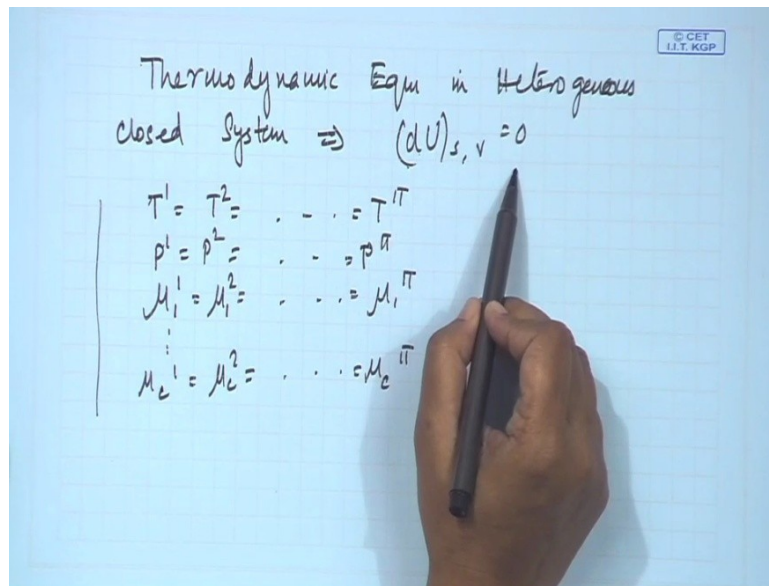 © CET
I.I.T. KGP
Thermodynamic Eqm in Heterogeneous
closed System ⇒ (dU)s, v = 0
T¹ = T² = . - . = T^π
P¹ = P² = . . - = P^π
μ₁¹ = μ₁² = . . . = μ₁^π
⋮
μc¹ = μc² = . . . = μc^π